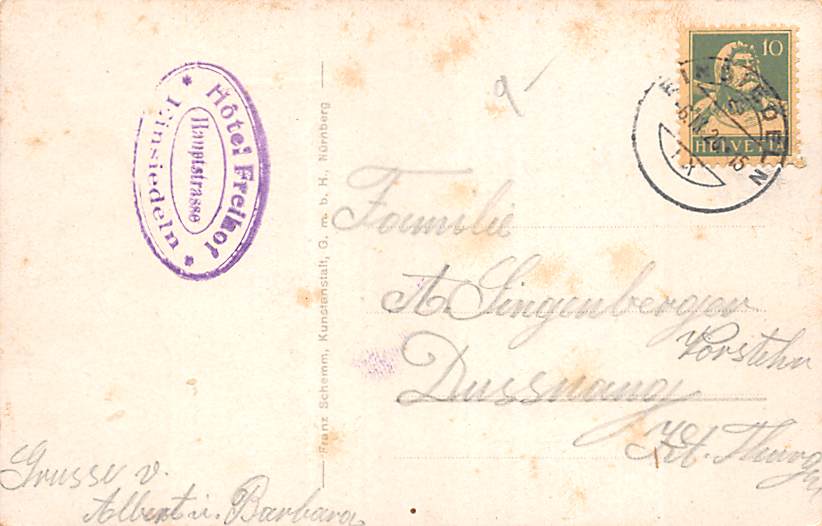 Hôtel Freihof
Hauptstrasse
* Einsiedeln *
Franz Schemm, Kunstanstalt, G. m. b. H., Nürnberg
10
HELVETIA
EINSIEDELN
9
Familie
A. Singenberger
Vorstehr
Dussnang
Kt. Thurgau
Grüsse v.
Albert u. Barbara